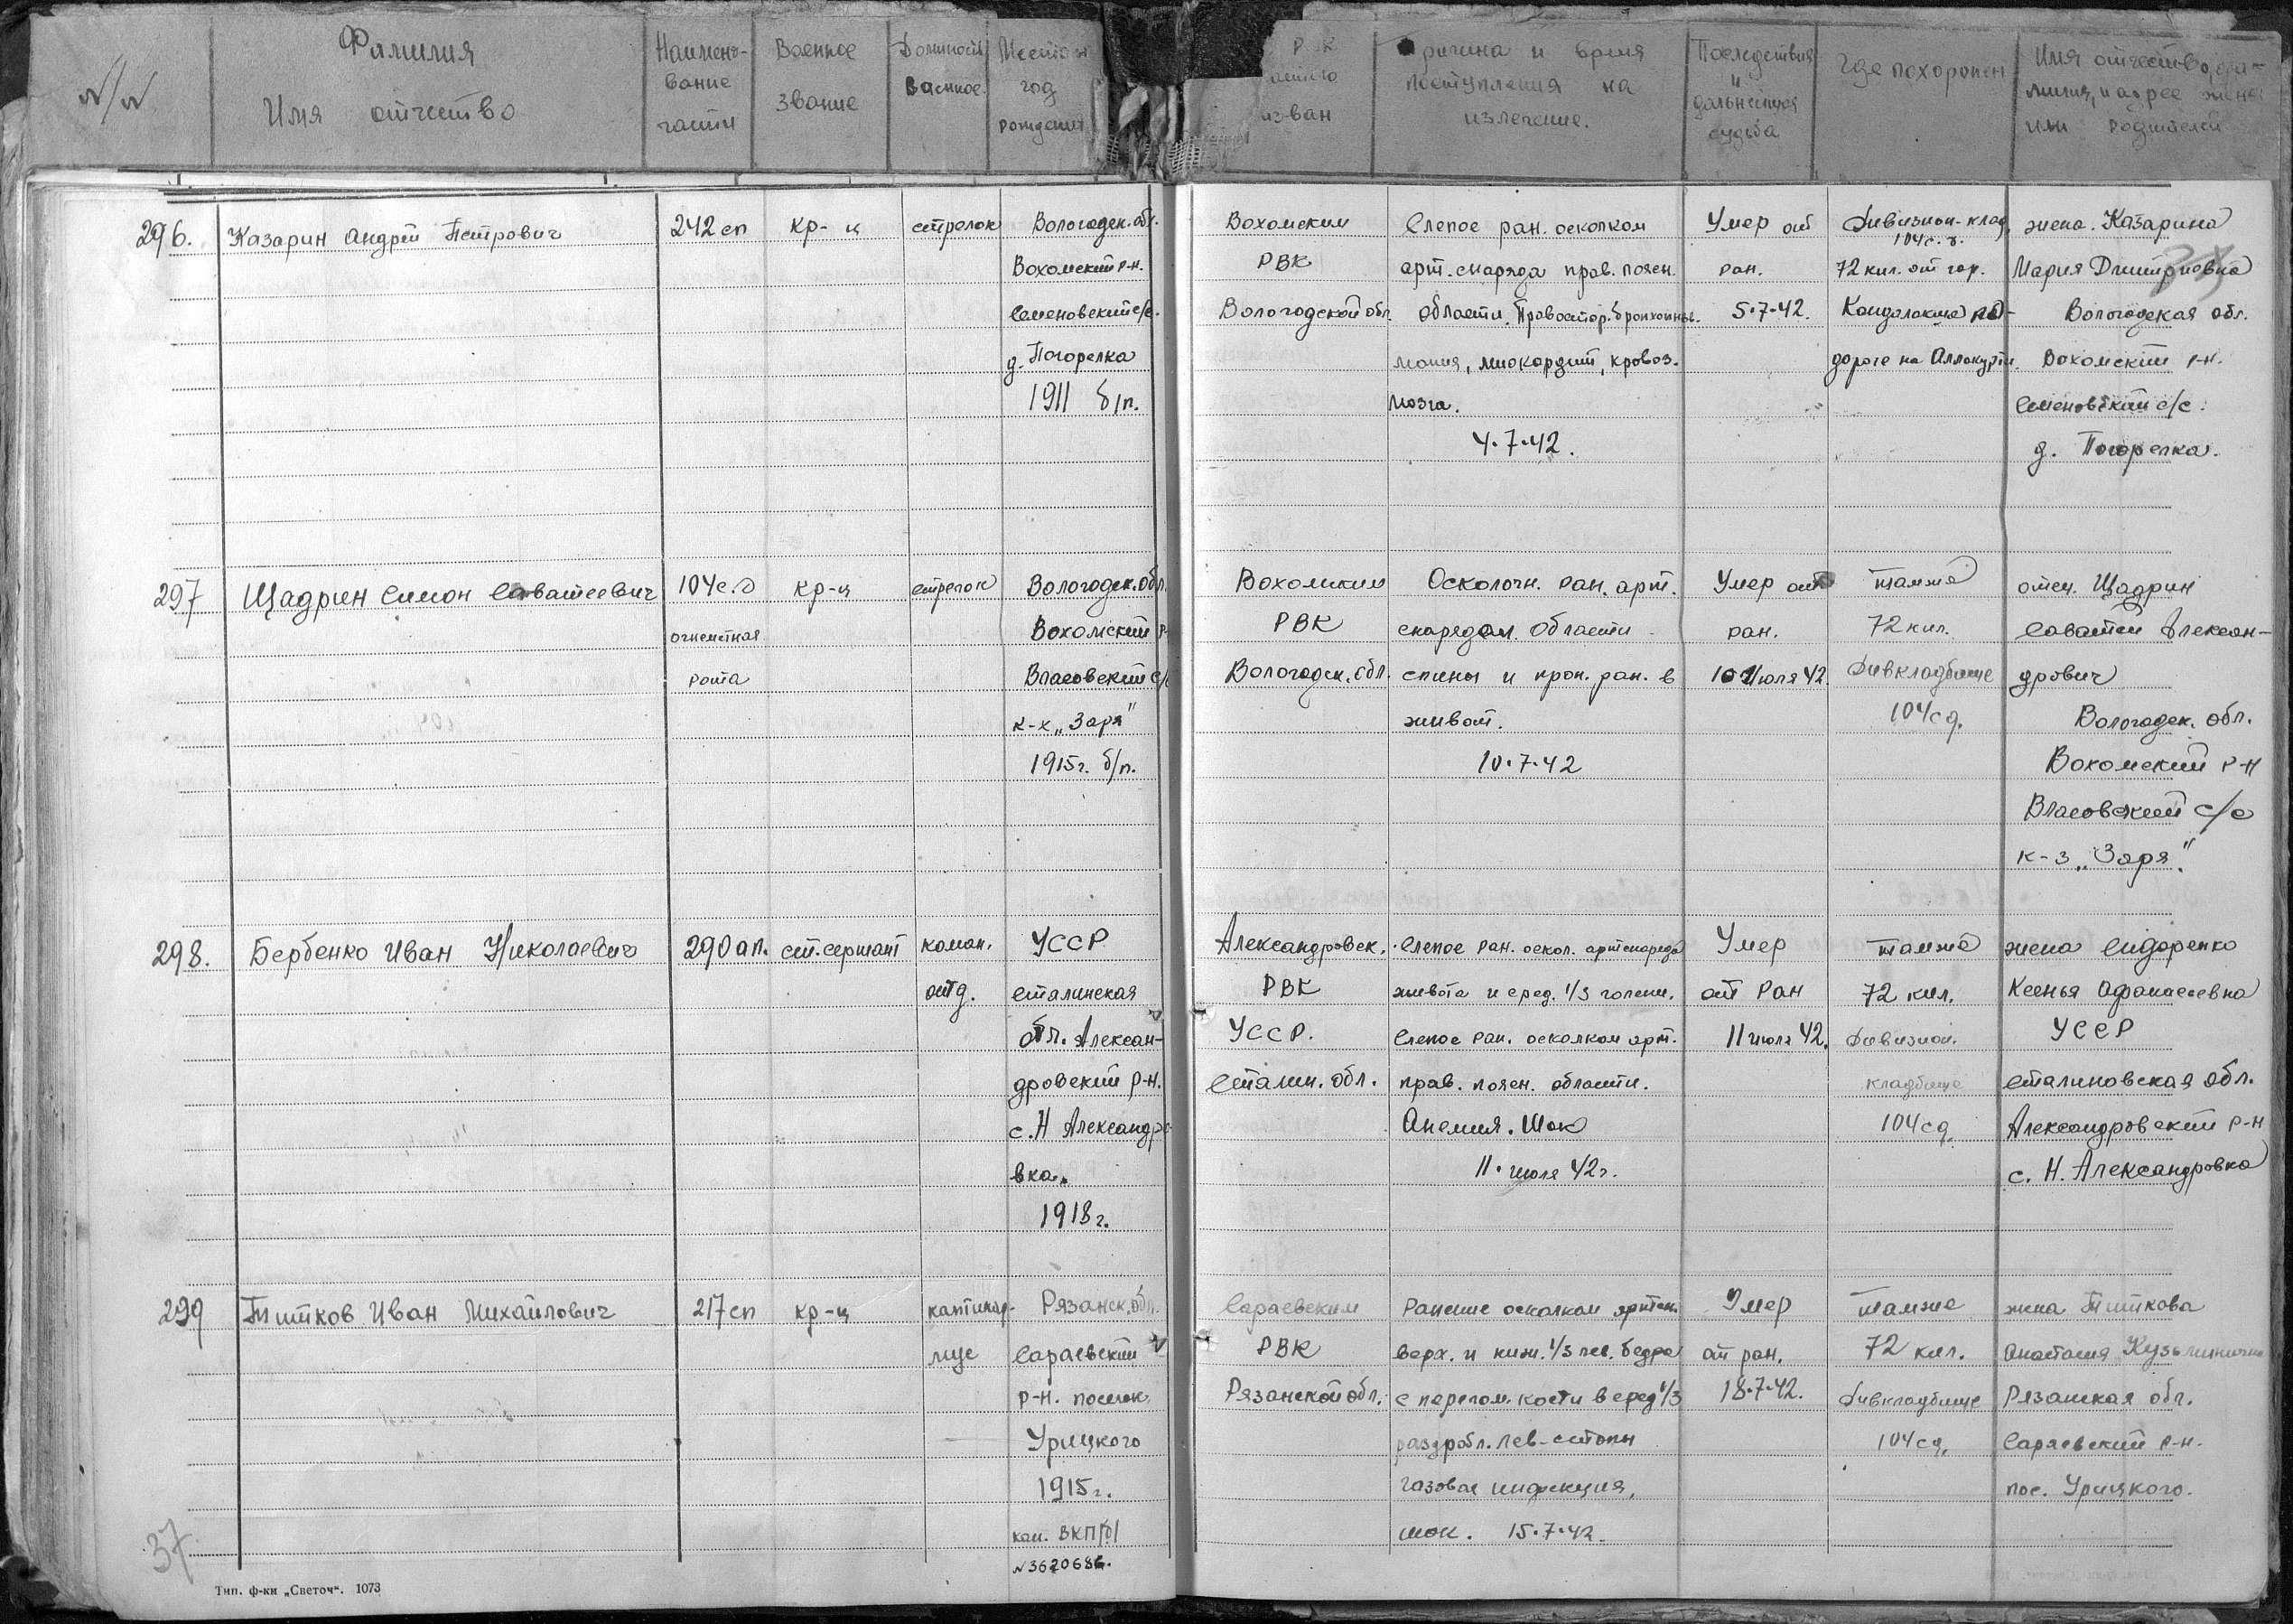 N/N
Фамилия
Имя отчество
Наимено-
вание
части
Военное
звание
Должность
Военное
Место и
год
рождения
изван
Причина и время
поступления на
излечение.
Последствия
и
дальнейшая
судьба
Где похоронен
Имя отчество, фа-
милия, и адрес жены
или родителей
296.
Казарин Андрей Петрович
242 сп
кр-ц
стрелок
Вологодск. обл.
Вохомский р-н.
Семеновский с/с.
д. Погорелка
1911 б/п.
Вохомским
РВК
Вологодской обл.
Слепое ран. осколком
арт. снаряда прав. поясн.
области. Правостор. бронхопне-
мония, миокардит, кровоз.
мозга.
4.7.42.
Умер от
ран.
5.7.42.
Дивизион. клад.
104 с.д.
72 кил. от гор.
Кандалакша по
дороге на Аллакурти.
жена. Казарина
Мария Дмитриевна
Вологодская обл.
Вохомский р-н.
Семеновский с/с.
д. Погорелка.
297
Щадрин Симон Саватеевич
104 с.д
огнеметная
рота
кр-ц
стрелок
Вологодск. обл.
Вохомский р-
Власовский с/с
к-х „Заря"
1915г. б/п.
Вохомским
РВК
Вологодск. обл.
Осколочн. ран. арт.
снарядом области
спины и прон. ран. в
живот.
10.7.42
Умер от
ран.
10 Июля 42.
тамже
72 кил.
Дивкладбище
104 сд.
отец. Щадрин
Саватей Алексан-
дрович
Вологодск. обл.
Вохомский р-н
Власовский с/с
к-з „Заря".
298.
Бербенко Иван Николаевич
290 ап.
ст. сержант
коман.
отд.
УССР
Сталинская
обл. Алексан-
дровский р-н.
с. Н Александро
вка.
1918 г.
Александровск.
РВК
УССР.
Сталин. обл.
Слепое ран. оскол. артснаряда
живота и сред. 1/3 голени.
Слепое ран. осколком арт.
прав. поясн. области.
Анемия. Шок
11. июля 42г.
Умер
от Ран
11 июля 42.
тамже
72 кил.
дивизион.
кладбище
104 сд.
жена Сидоренко
Ксенья Афанасевна
УССР
Сталиновская обл.
Александровский р-н
с. Н. Александровка
299
Титков Иван Михайлович
217 сп
кр-ц
каптинар-
мус
Рязанск. обл.
Сараевский
р-н. поселок
Урицкого
1915 г.
кан. ВКП/б/
N 3620686.
Сараевским
РВК
Рязанской обл.
Ранение осколком артсн.
верх. и ниж. 1/3 лев. бедра
с перелом. кости в сред 1/3
раздробл. лев-стопы
газовая инфекция,
шок. 15.7.42.
Умер
от ран.
18.7.42.
тамже
72 кил.
дивкладбище
104 сд.
жена Титкова
Анастасия Кузьминична
Рязанская обл.
Сараевский р-н.
пос. Урицкого.
37
Тип. ф-ки „Светоч". 1073